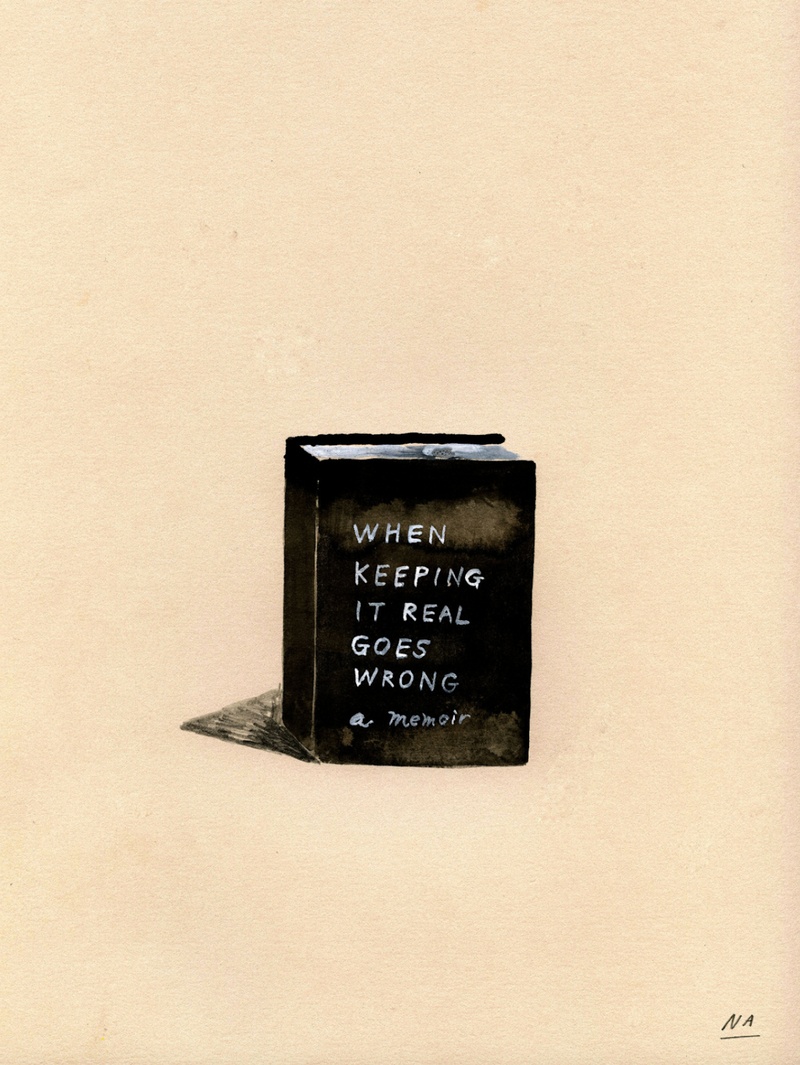 WHEN
KEEPING
IT REAL
GOES
WRONG
a memoir
NA